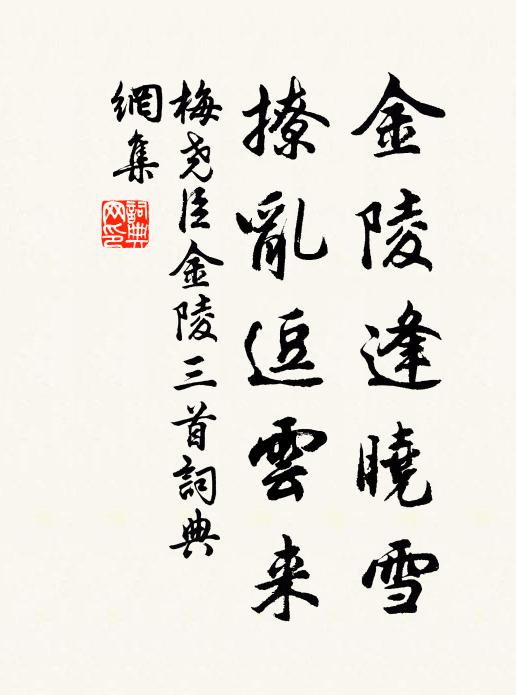 金陵逢曉雪
撩亂逗雲来
梅尧臣金陵三首詞典
網集
詞典
网印